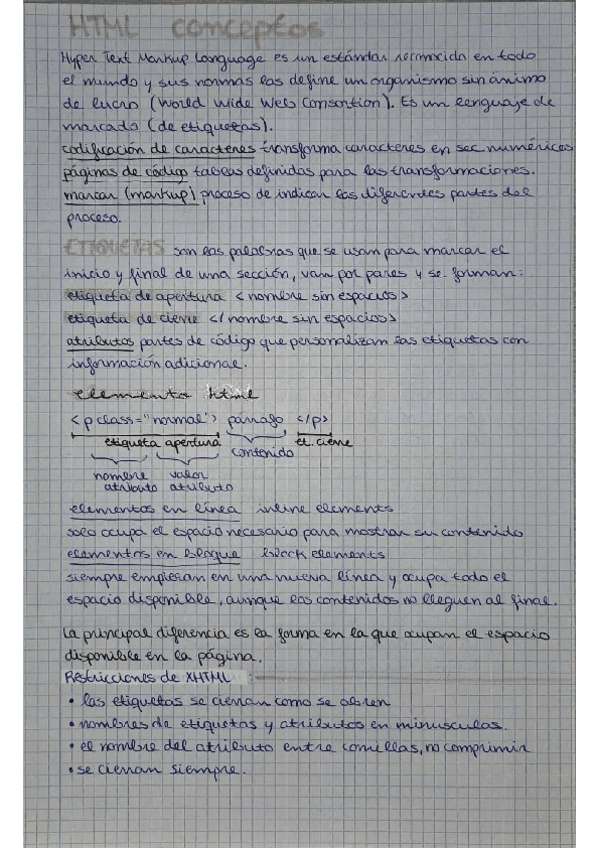 HTML conceptos
Hyper Text Markup Language es un estándar reconocido en todo
el mundo y sus normas las define un organismo sin ánimo
de lucro (World Wide Web Consortion). Es un lenguaje de
marcado (de etiquetas).
codificación de caracteres transforma caracteres en sec. numéricas
páginas de código tablas definidas para las transformaciones.
marcar (markup) proceso de indicar las diferentes partes del
proceso.
ETIQUETAS son las palabras que se usan para marcar el
inicio y final de una sección, van por pares y se forman:
etiqueta de apertura <nombre sin espacios>
etiqueta de cierre </ nombre sin espacios>
atributos partes de código que personalizan las etiquetas con
información adicional.
elemento html
<p class="normal"> párrafo </p>
etiqueta apertura contenido et. cierre
nombre valor
atributo atributo
elementos en línea inline elements
solo ocupa el espacio necesario para mostrar su contenido
elementos en bloque block elements
siempre empiezan en una nueva línea y ocupa todo el
espacio disponible, aunque los contenidos no lleguen al final.
La principal diferencia es la forma en la que ocupan el espacio
disponible en la página.
Restricciones de XHTML:
• las etiquetas se cierran como se abren
• nombres de etiquetas y atributos en minusculas.
• el nombre del atributo entre comillas, no comprimir
• se cierran siempre.